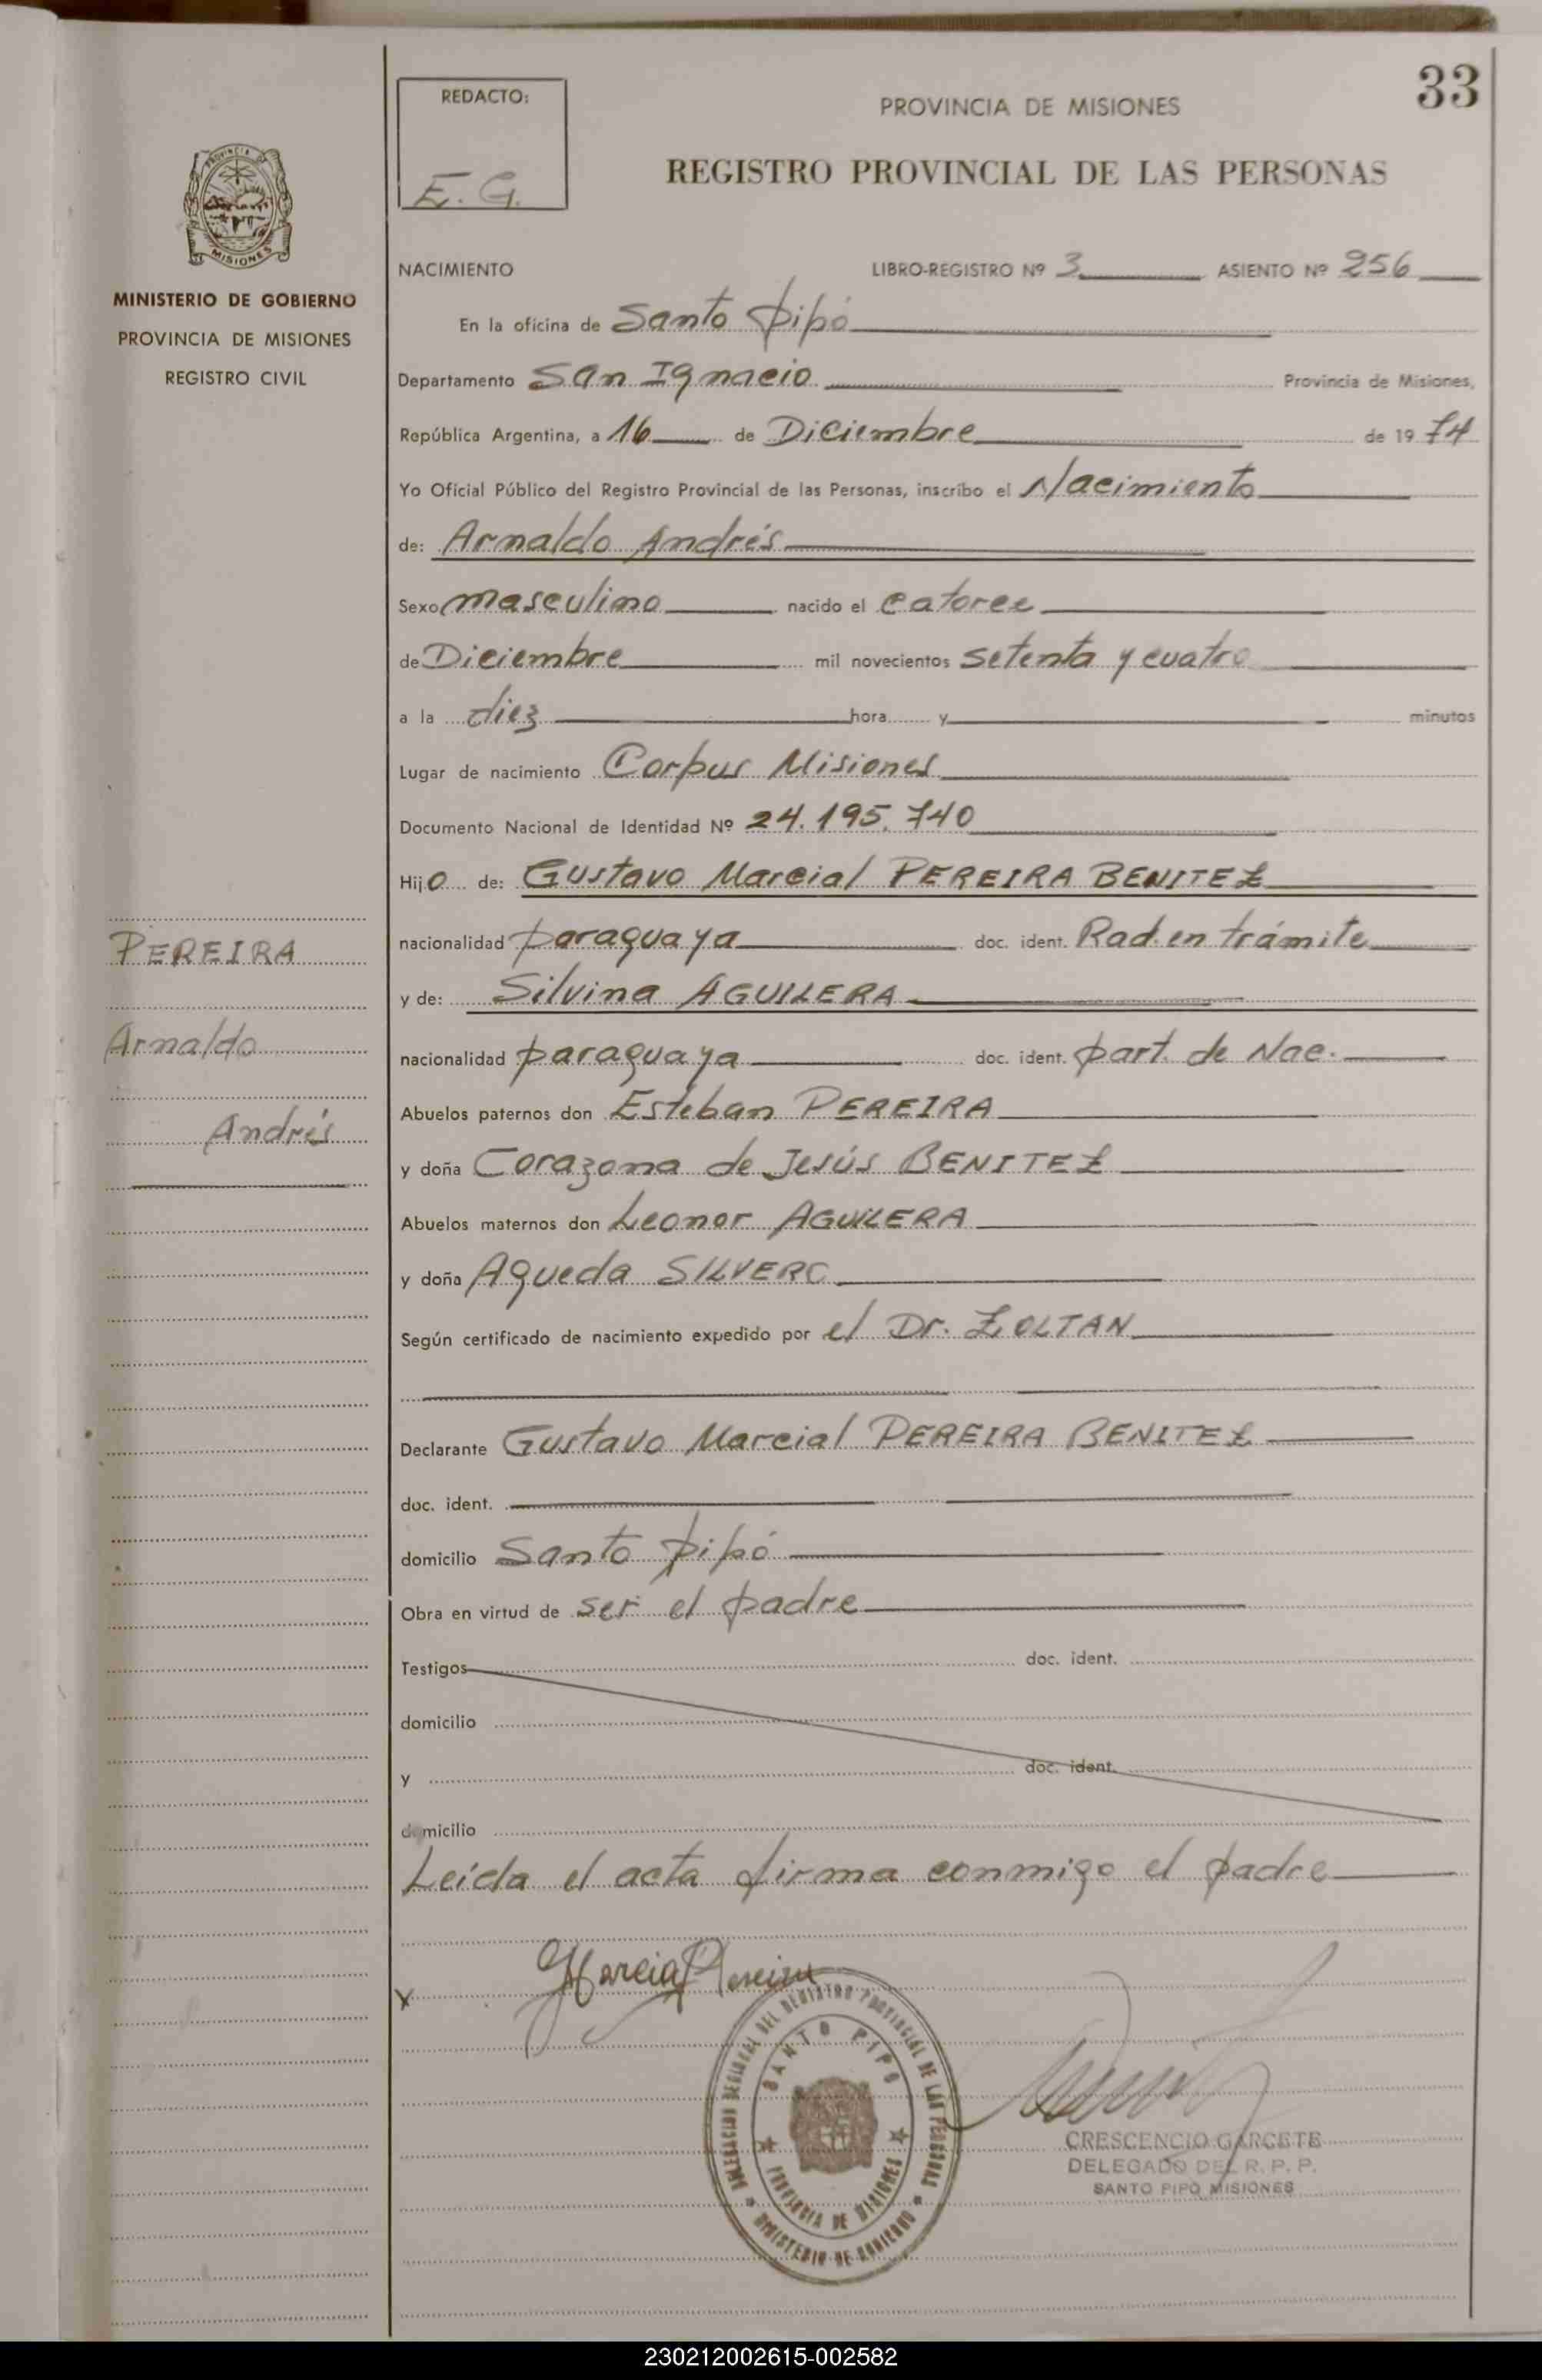 33
REDACTO:
E. G.
PROVINCIA DE MISIONES
REGISTRO PROVINCIAL DE LAS PERSONAS
PROVINCIA DE
MISIONES
MINISTERIO DE GOBIERNO
PROVINCIA DE MISIONES
REGISTRO CIVIL
NACIMIENTO LIBRO-REGISTRO Nº 3 ASIENTO Nº 256
En la oficina de Santo Pipó
Departamento San Ignacio Provincia de Misiones,
República Argentina, a 16 de Diciembre de 19 74
Yo Oficial Público del Registro Provincial de las Personas, inscribo el Nacimiento
de: Arnaldo Andrés
Sexo masculino nacido el catorce
de Diciembre mil novecientos setenta y cuatro
a la diez hora y minutos
Lugar de nacimiento Corpus Misiones
Documento Nacional de Identidad Nº 24.195.740
Hijo de: Gustavo Marcial PEREIRA BENITEZ
nacionalidad paraguaya doc. ident. Rad. en trámite
y de: Silvina AGUILERA
nacionalidad paraguaya doc. ident. part. de Nac.
Abuelos paternos don Esteban PEREIRA
y doña Corazona de Jesús BENITEZ
Abuelos maternos don Leonor AGUILERA
y doña Agueda SILVERO
Según certificado de nacimiento expedido por el Dr. ZOLTAN
Declarante Gustavo Marcial PEREIRA BENITEZ
doc. ident.
domicilio Santo Pipó
Obra en virtud de ser el padre
Testigos doc. ident.
domicilio
y doc. ident.
domicilio
Leída el acta firma conmigo el padre
PEREIRA
Arnaldo
Andrés
x
DELEGACION REGIONAL DEL REGISTRO PROVINCIAL DE LAS PERSONAS
SANTO PIPO
PROVINCIA DE MISIONES
MINISTERIO DE GOBIERNO
CRESCENCIO GARCETE
DELEGADO DEL R. P. P.
SANTO PIPO MISIONES
230212002615-002582